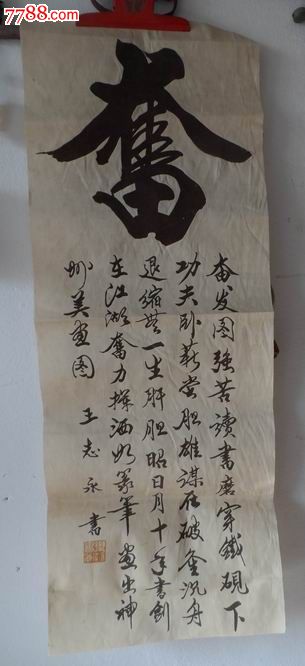 7788.com
奮
奋发图强苦读书磨穿鐵砚下
功夫卧薪尝胆雄谋在破釜沉舟
退缩無一生肝胆昭日月十年書劍
在江湖奮力揮洒如篆筆画出神
州美画图
王志永書